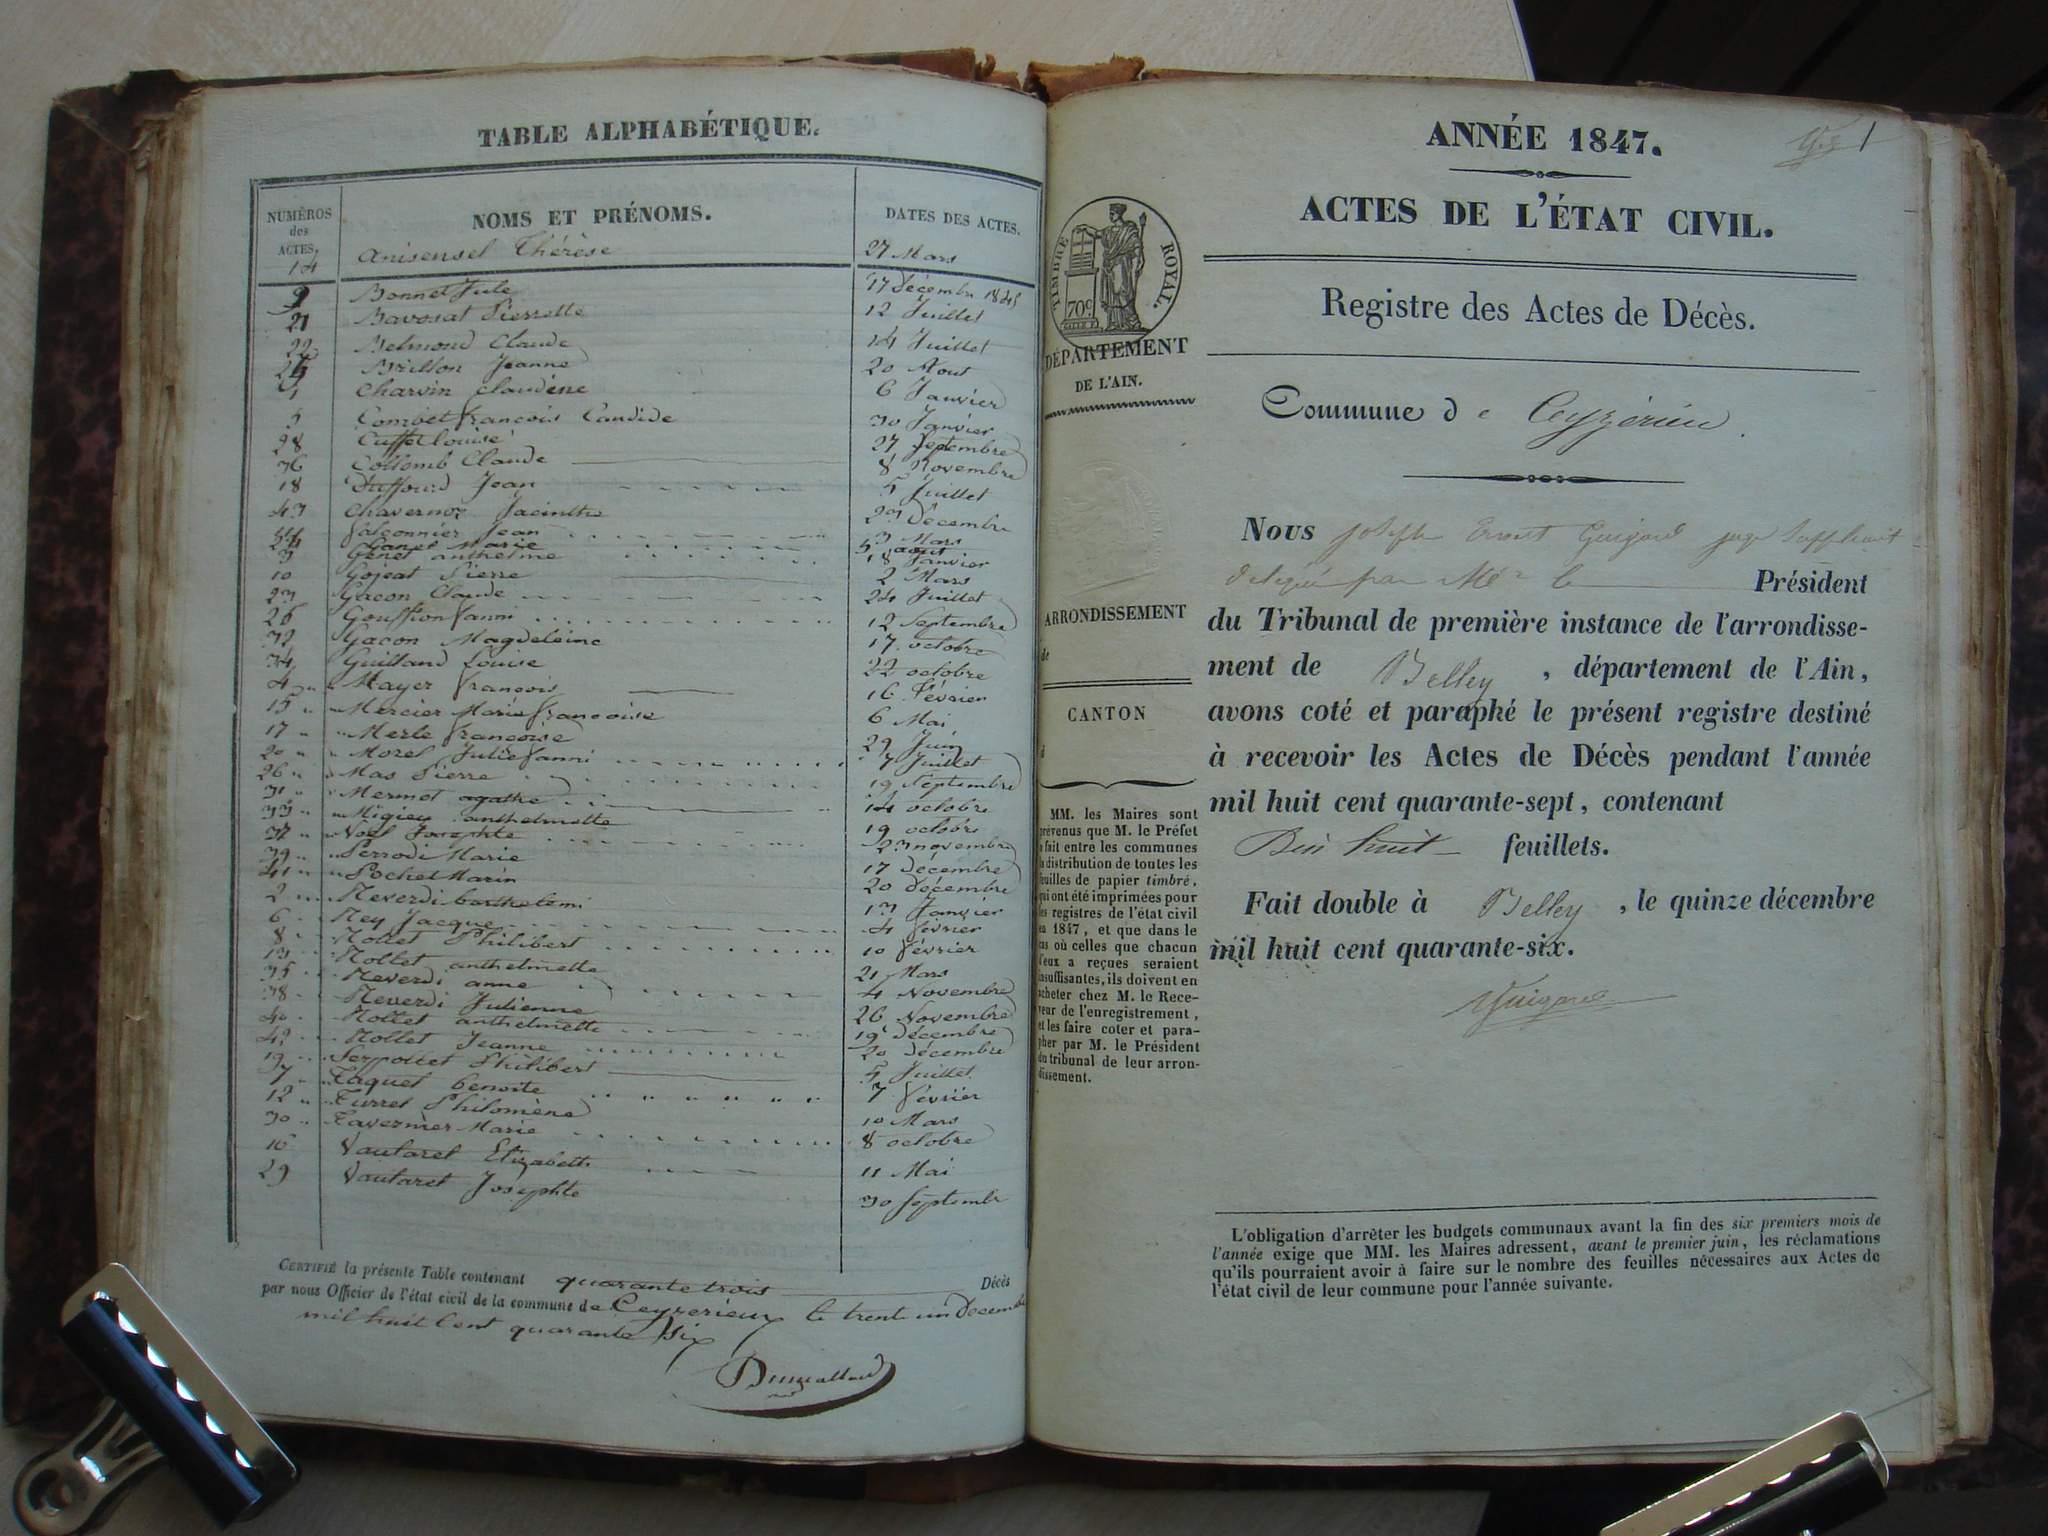 TABLE ALPHABÉTIQUE.
NUMÉROS des ACTES. NOMS ET PRÉNOMS. DATES DES ACTES.
14 Anisensel Thérèse 27 Mars
9 Bonnet Jule 17 décembre 1845
21 Bavosat Pierrette 12 Juillet
22 Belmond Claude 14 Juillet
Brillon Jeanne 20 Aout
1 Charvin Claudène 6 Janvier
5 Combet françois Candide 30 Janvier
28 Cuffet Louise 27 Septembre
36 Collomb Claude 8 Novembre
18 Duffourd Jean 5 Juillet
43 Chavernoz Jacinthe 23 Décembre
falconnier Jean 3 Mars
24 Ganet Marie 5 aout
3 Génet anthelme 18 Janvier
10 Gojeat Pierre 2 Mars
23 Gacon Claude 24 Juillet
25 Gouffion fanni 12 Septembre
32 Gacon Magdeleine 17 octobre
34 Guilland Louise 22 octobre
4 Mayer françois 16 Février
15 Mercier Marie françoise 6 Mai
17 Merle françoise 29 Juin
20 Morel Julie fanni 7 Juillet
26 Mas Pierre 19 Septembre
31 Mermet agathe 14 octobre
33 Migieu anthelmette 19 octobre
37 Noël Josephte 23 novembre
39 Perrodi Marie 17 décembre
41 Pochet Marin 20 décembre
2 Reverdi barthelemi 13 Janvier
6 Rey Jacque 4 février
8 Rollet Philibert 10 février
13 Rollet anthelmette 21 Mars
35 Reverdi anne 4 Novembre
38 Reverdi Julienne 26 Novembre
40 Rollet anthelmette 19 décembre
42 Rollet Jeanne 20 décembre
19 Serpollet Philibert 5 Juillet
7 Taquet benoite 7 février
12 Turrel Philomène 10 Mars
30 Tavernier Marie 8 octobre
16 Vautaret Elizabeth 11 Mai
29 Vautaret Josephte 30 Septembr
CERTIFIÉ la présente Table contenant quarante trois Décès
par nous Officier de l'état civil de la commune de Ceyzerieux le trente un Decembre
mil huit Cent quarante Six
ANNÉE 1847.
1
ACTES DE L'ÉTAT CIVIL.
Registre des Actes de Décès.
TIMBRE ROYAL.
70c
DÉPARTEMENT
DE L'AIN.
Commune de Ceyzérieu.
Nous Joseph Ernest Guigard juge Suppléant
délégué par Mr le Président
du Tribunal de première instance de l'arrondisse-
ment de Belley, département de l'Ain,
avons coté et paraphé le présent registre destiné
à recevoir les Actes de Décès pendant l'année
mil huit cent quarante-sept, contenant
Dix huit feuillets.
Fait double à Belley, le quinze décembre
mil huit cent quarante-six.
Guigard
ARRONDISSEMENT
de
CANTON
d
MM. les Maires sont
prévenus que M. le Préfet
a fait entre les communes
la distribution de toutes les
feuilles de papier timbré,
qui ont été imprimées pour
les registres de l'état civil
en 1847, et que dans le
cas où celles que chacun
d'eux a reçues seraient
insuffisantes, ils doivent en
acheter chez M. le Rece-
veur de l'enregistrement,
et les faire coter et para-
pher par M. le Président
du tribunal de leur arron-
dissement.
L'obligation d'arrêter les budgets communaux avant la fin des six premiers mois de
l'année exige que MM. les Maires adressent, avant le premier juin, les réclamations
qu'ils pourraient avoir à faire sur le nombre des feuilles nécessaires aux Actes de
l'état civil de leur commune pour l'année suivante.